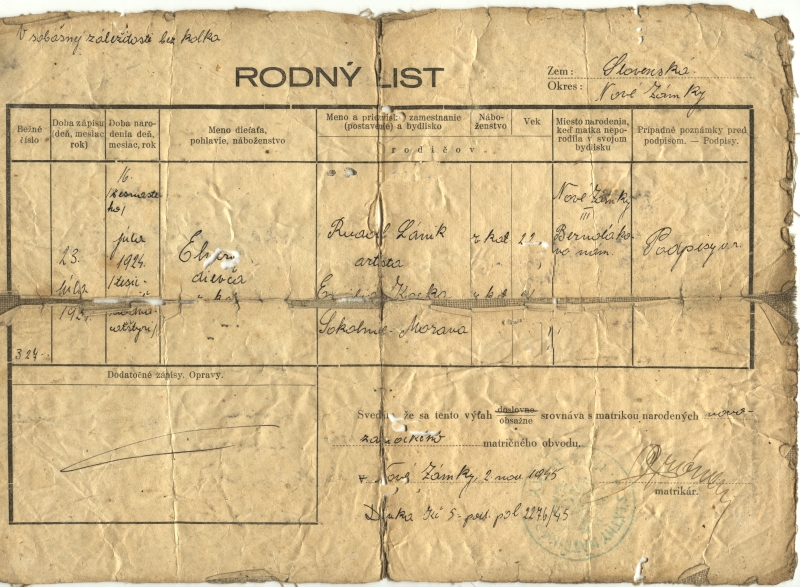 V sobášnej záležitosti bez kolka
RODNÝ LIST
Zem: Slovensko
Okres: Nové Zámky
Bežné číslo
Doba zápisu deň, mesiac, rok)
Doba narodenia deň, mesiac, rok
Meno dieťaťa, pohlavie, náboženstvo
Meno a zamestnanie (postavenie) a bydlisko
rodičov
Náboženstvo
Vek
Miesto narodenia, keď matka neporodila v svojom bydlisku
Prípadné poznámky pred podpisom. — Podpisy.
324
23.
júla
16.
júla
1924
dievča
Rudolf Láník
artista
r. kat
22
Sokolnice Morava
Nové Zámky
III
Bernolákovo nám.
Podpisy vr.
Dodatočné zápisy. Opravy.
že sa tento výťah doslovne obsažne srovnáva s matrikou narodených novo-
zámockého matričného obvodu.
v Nové Zámky, 2 nov 1945
matrikár.
2276/45